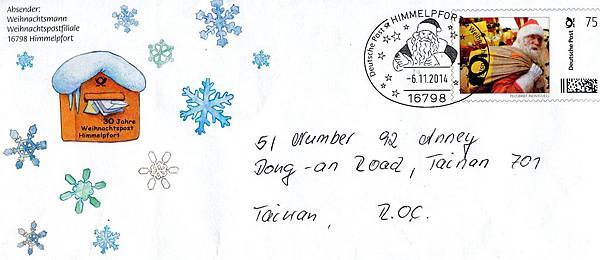 Absender:
Weihnachtsmann
Weihnachtspostfiliale
16798 Himmelpfort
30 Jahre
Weihnachtspost
Himmelpfort
Deutsche Post HIMMELPFORT
-6.11.2014
16798
75
Deutsche Post
PLUSBRIEF INDIVIDUELL
51 Number 92 Anney
Dong-an Road, Tainan 701
Tainan, R.O.C.